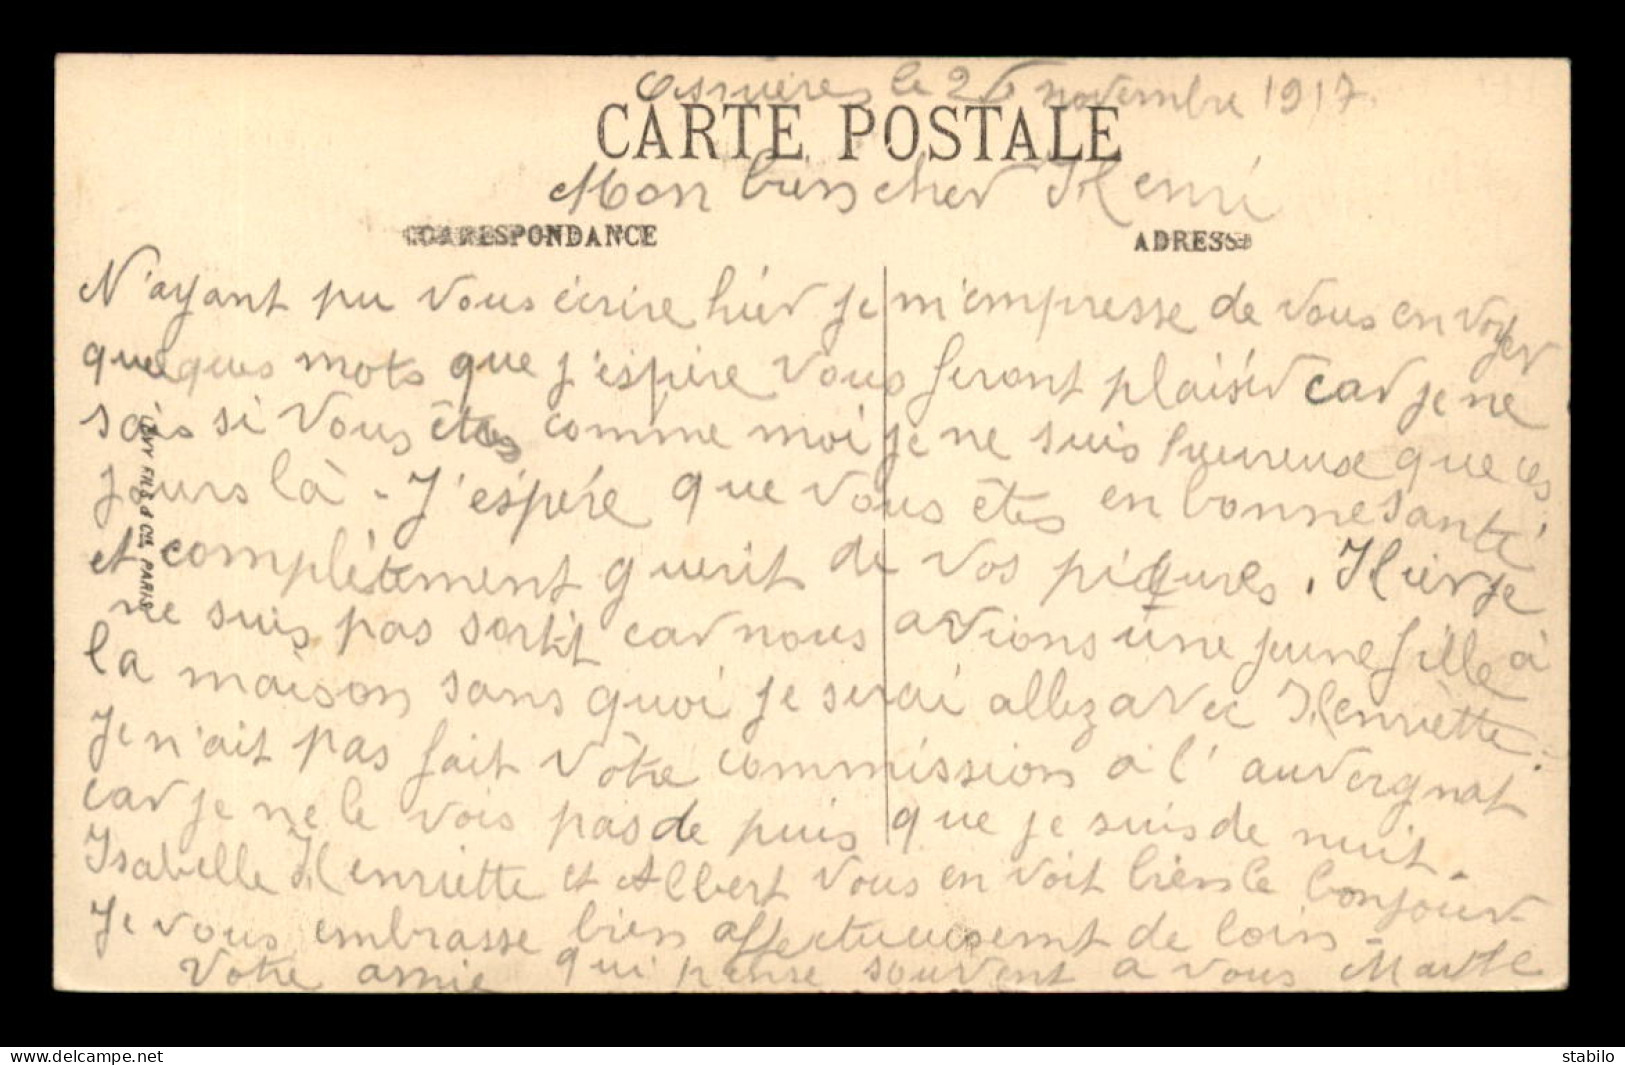 Asnières le 26 novembre 1917.
CARTE POSTALE
Mon bien cher Henri
CORRESPONDANCE
ADRESSE
N'ayant pu vous écrire hier je m'empresse de vous envoyer
quelques mots que j'espère vous feront plaisir car je ne
sais si vous êtes comme moi je ne suis heureuse que ces
jours là - J'espère que vous êtes en bonne santé
et complètement guerit de vos piqures. Hier je
ne suis pas sortit car nous avions une jeune fille à
la maison sans quoi je serai allez avec Henriette.
Je n'ait pas fait vôtre commission a l'auvergnat
car je ne le vois pas de puis que je suis de nuit.
Isabelle Henriette et Albert vous en voit bien le bonjour.
Je vous embrasse bien affectueusement de loin -
Votre amie qui pense souvent a vous Marthe
LÉVY FILS & CIE PARIS
delcampe.net
stabilo